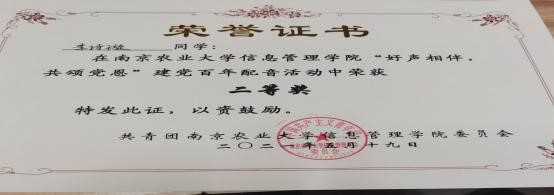 荣誉证书
同学：
在南京农业大学信息管理学院“好声相伴，
共颂党恩”建党百年配音活动中荣获
二等奖
特发此证，以资鼓励。
共青团南京农业大学信息管理学院委员会
二〇二一年五月十九日